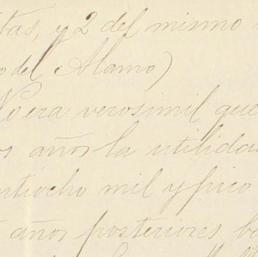 tas, y 2 del mismo
o del Alamo)
No era verosimil que
os años la utilidad
ntiocho mil y pico
años posteriores ba